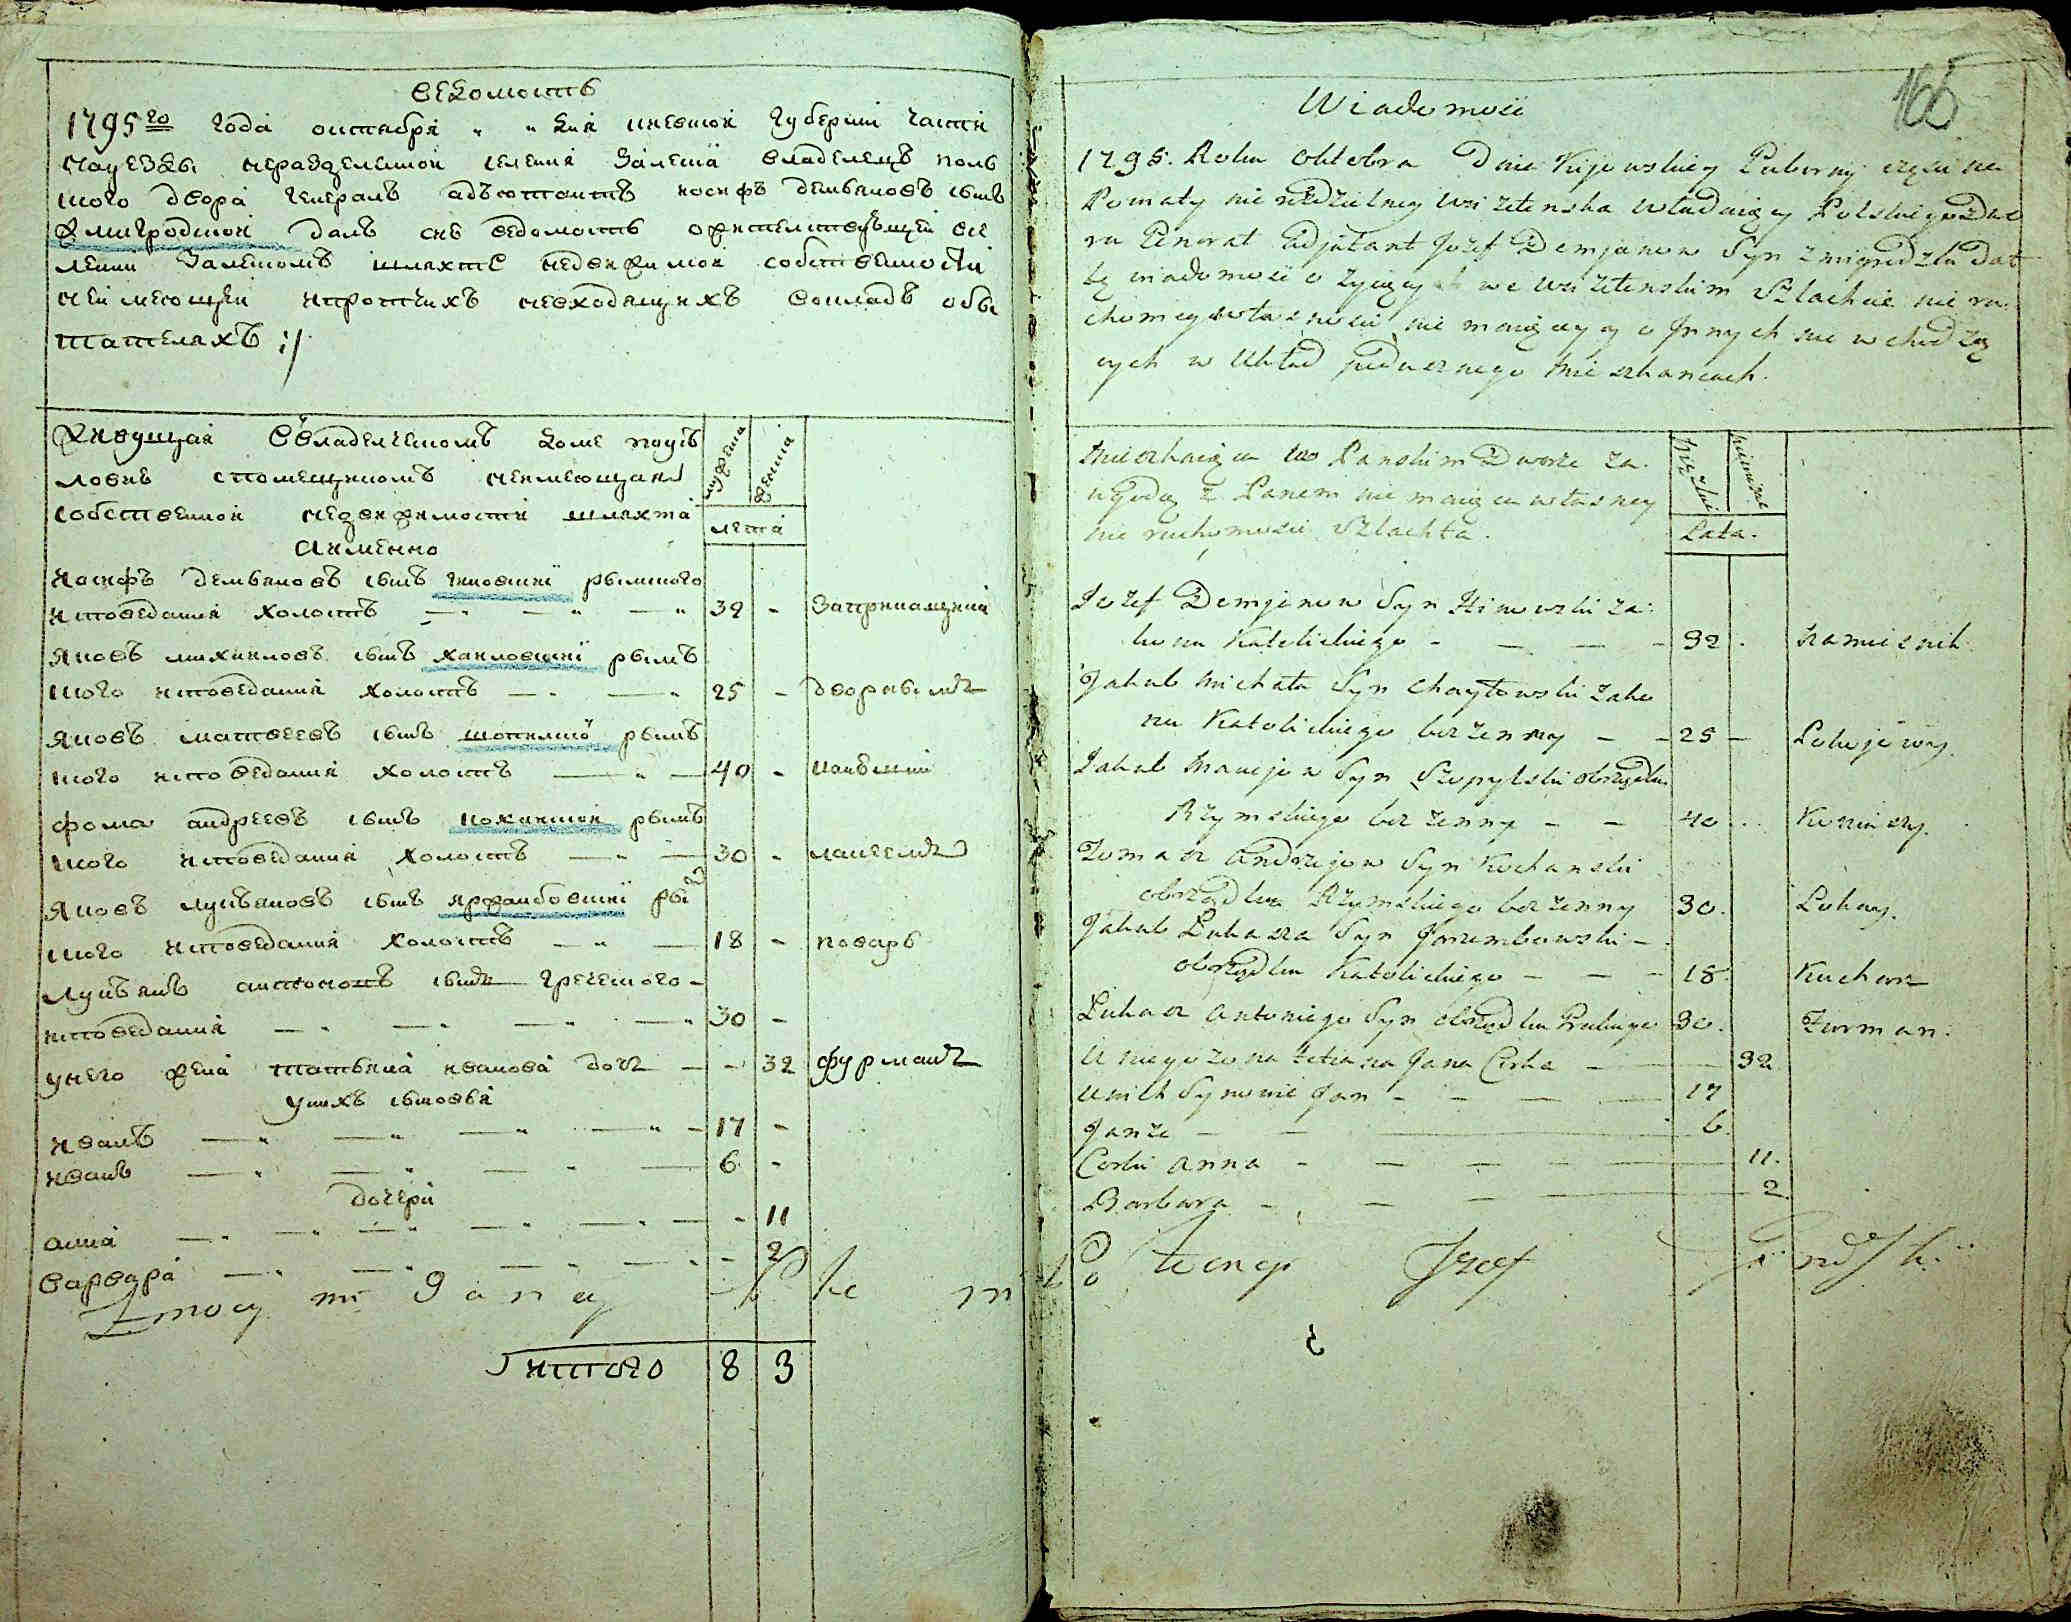 ведомость
1795го года октября " " дня киевской губернии части
науезды неразделенной селения Залеский владелецъ поль
ского двора генералъ адъютантъ иосифъ демьяновъ сынъ
жмигродский далъ сию ведомость о жительствующей в се
лении Залескомъ шляхте недвижимой собственности
неимеющей ипротчихъ невходящихъ вокладъ обы
вателяхъ ://
живущаяВвладелческомъ доме поусъ
ловию спомещикомъ неимеющая
собственной недвижимости шляхта
Аименно
мужеска
женска
лета
иосифъ демьяновъ сынъ гиновский рымского
исповедания холостъ 32 - 
яковъ михаиловъ сынъ хаиловский рымъ
ского исповедания холостъ 25 - дворныкъ
яковъ матвеевъ сынъ шопилский рымъ
ского исповедания холостъ 40 -
фома андреевъ сынъ коханский рымъ
ского исповедания холостъ 30 - лакеемъ
яковъ лукьяновъ сынъ яржамбовский рым
ского исповедания холостъ 18 - поваръ
лукьянъ антоновъ сынъ греческого
исповедания 30 -
унего жена татьяна иванова дочь - 32 фурманъ
унихъ сыновья
иванъ 17 -
иванъ 6 -
дочери
анна - 11
варвара - 2
Z mocy mi daney
итого 8 3
166
Wiadomość
1795. Roku Oktobra Dnia Kijowskiey Guberny części na
Powiaty nie rozdzielney wsi Zeleńska władaiący Polskiego dwo
ru Generał Adjutant Jozef Demjanow Syn Zmigrodzki Dał
tę wiadomość o żyiących we wsi Zeleńskim Szlachcie nie ru
chomey własności nie maiącey y o Jnnych nie wchodzą
cych w Układ podusznego Mieszkancach.
Mieszkaiąca we Panskim Dworze za
ugodą z Panem nie maiąca własney
nie ruchomości Szlachta.
Lata.
Jozef Demjanow Syn Hinowski Za
konu Katolickiego 32 .
Jakub Michała Syn Chayłowski Zako
nu Katolickiego bezżenny 25 Pokojowy.
Jakub Maciejow Syn Szopylski obrządku
Rzymskiego bezżenny 40 Koniuszy.
Tomasz Andrzejow Syn Kochanski
obrządku Rzymskiego bezżenny 30. Lokay.
Jakub Lukasza Syn Jarzembowski
obrządku Katolickiego 18. Kucharz
Lukasz Antoniego Syn obrządku Grekiego 30. Furman.
U niego żona Tetiana Jana Corka 32
U nich Synowie Jan 17
Janże 6
Corki Anna 11.
Barbara 2
Jozef